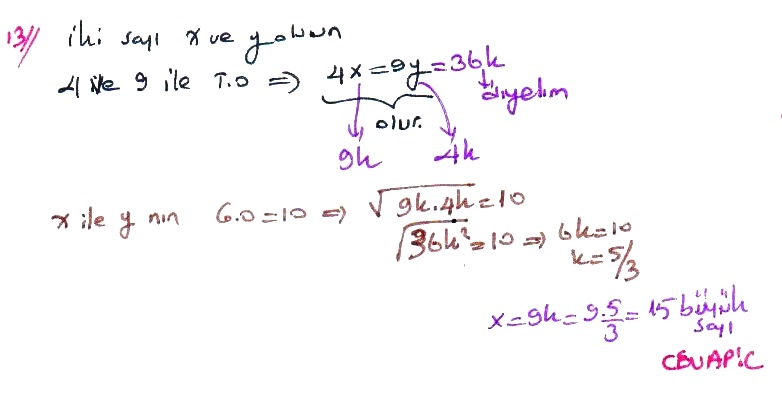 13// iki sayı x ve y olsun
4 ile 9 ile T.O ⇒ 4x=9y=36k
diyelim
olur.
9k 4k
x ile y nin G.O=10 ⇒ √9k.4k=10
√36k²=10 ⇒ 6k=10
k=5/3
x=9k=9.5/3=15 büyük
sayı
CEVAP:C